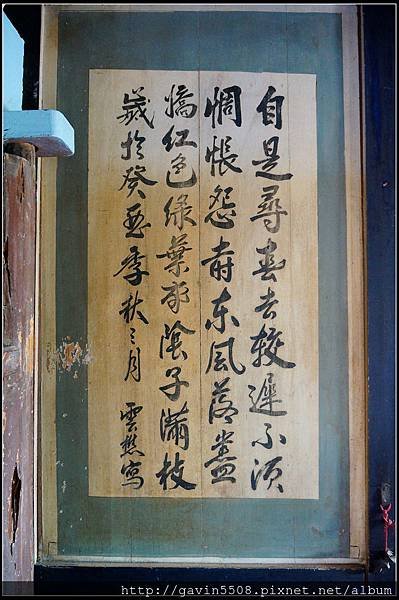 自是尋春去較遲不須
惆悵怨東風落盡
嬌紅色綠葉成陰子滿枝
歲於癸酉季秋之月
雲樵寫
http://gavin5508.pixnet.net/album